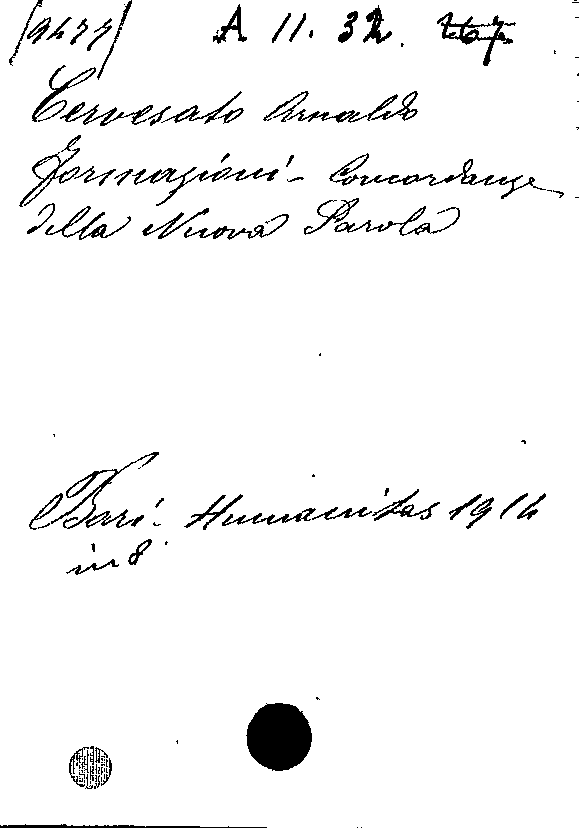 (9477) A 11. 32.
Cervesato Arnaldo
Formazioni - Concordanze
della Nuova Parola
Bari - Humanitas 1914
in 8.